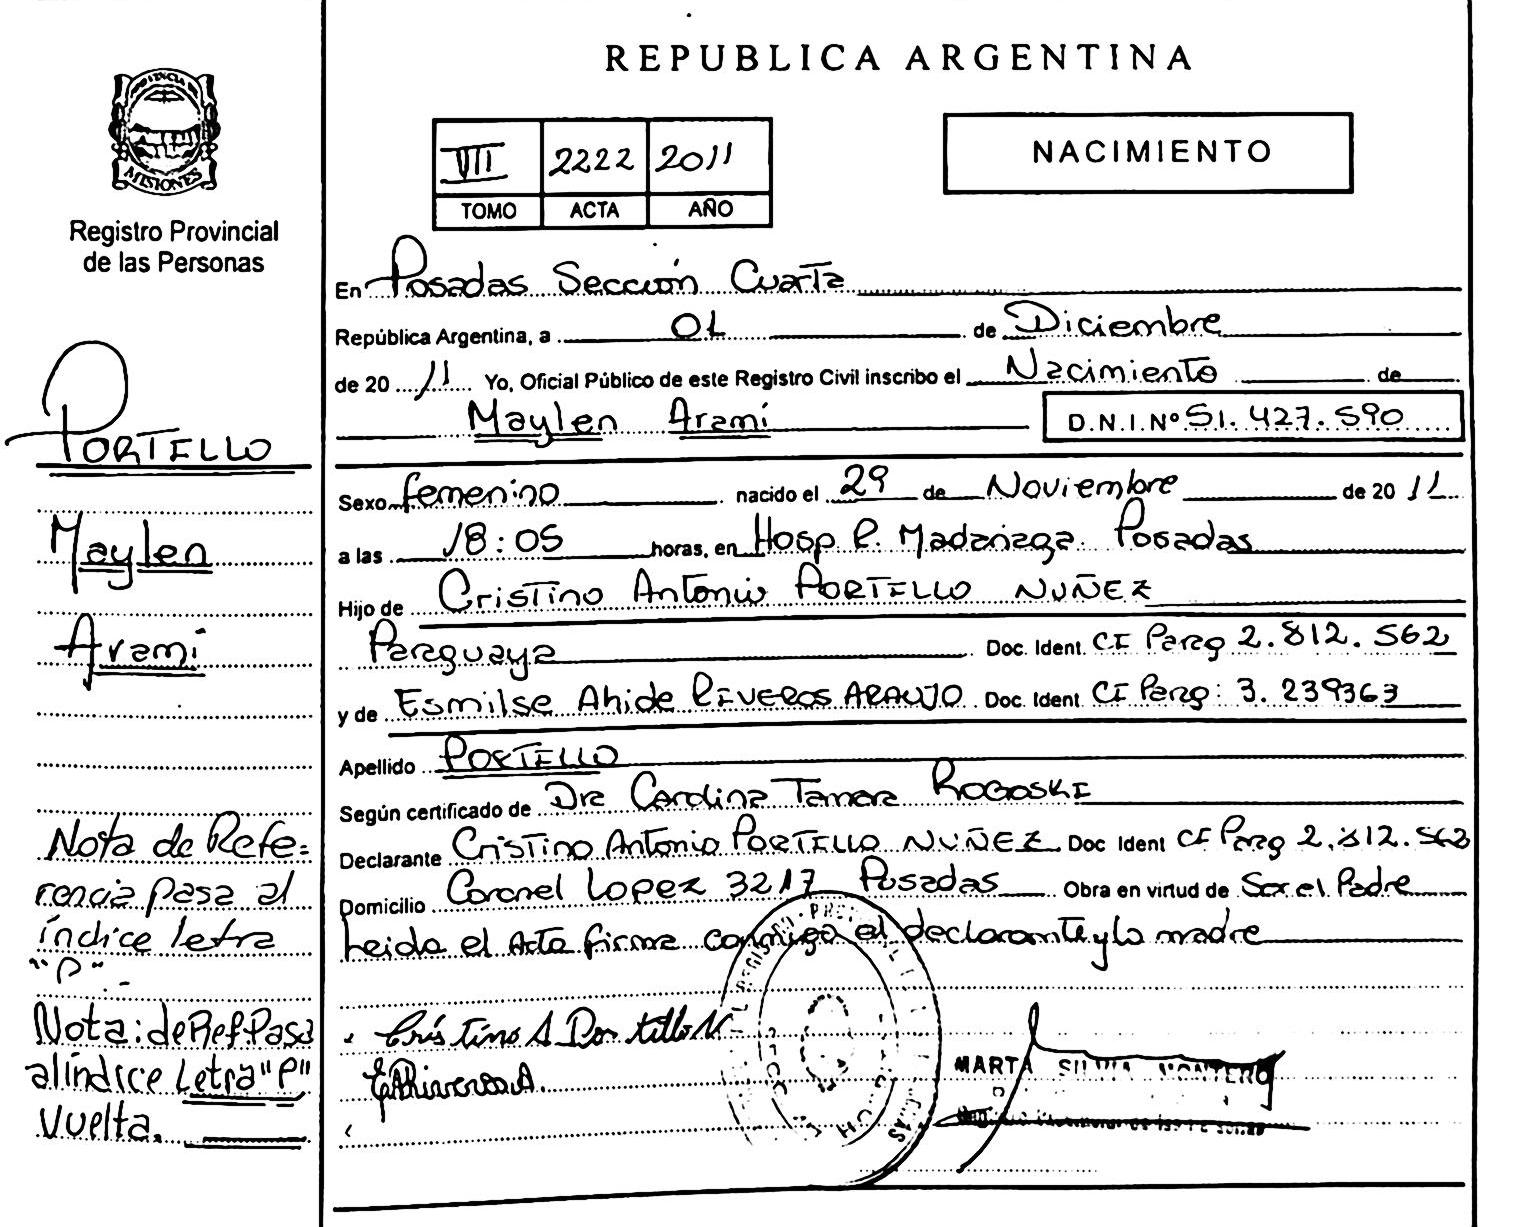 PROVINCIA
MISIONES
Registro Provincial
de las Personas
PORTILLO
Maylen
Aramí
Nota de Refe=
rencia pasa al
índice letra
"P".-
Nota: de Ref. Pasa
al índice Letra "P"
Vuelta.
REPUBLICA ARGENTINA
VII 2222 2011
TOMO ACTA AÑO
NACIMIENTO
En Posadas Sección Cuarta
República Argentina, a 01 de Diciembre
de 20 11 Yo, Oficial Público de este Registro Civil inscribo el Nacimiento de
Maylen Aramí D.N.I.Nº 51.427.590
Sexo femenino nacido el 29 de Noviembre de 20 11
a las 18:05 horas, en Hosp R. Madariaga. Posadas
Hijo de Cristino Antonio PORTILLO NUÑEZ
Paraguaya Doc. Ident. CI Parag 2.812.562
y de Esmilse Ahide RIVEROS ARAUJO Doc. Ident. CI Parag: 3.239363
Apellido PORTILLO
Según certificado de Dra Carolina Tamara ROGOSKI
Declarante Cristino Antonio PORTILLO NUÑEZ Doc Ident CI Parag 2.812.562
Domicilio Coronel Lopez 3217 Posadas Obra en virtud de Ser el Padre
Leida el Acta firma conmigo el declarante y la madre
Cristino A Portillo N
MARTA SILVIA MONTERO